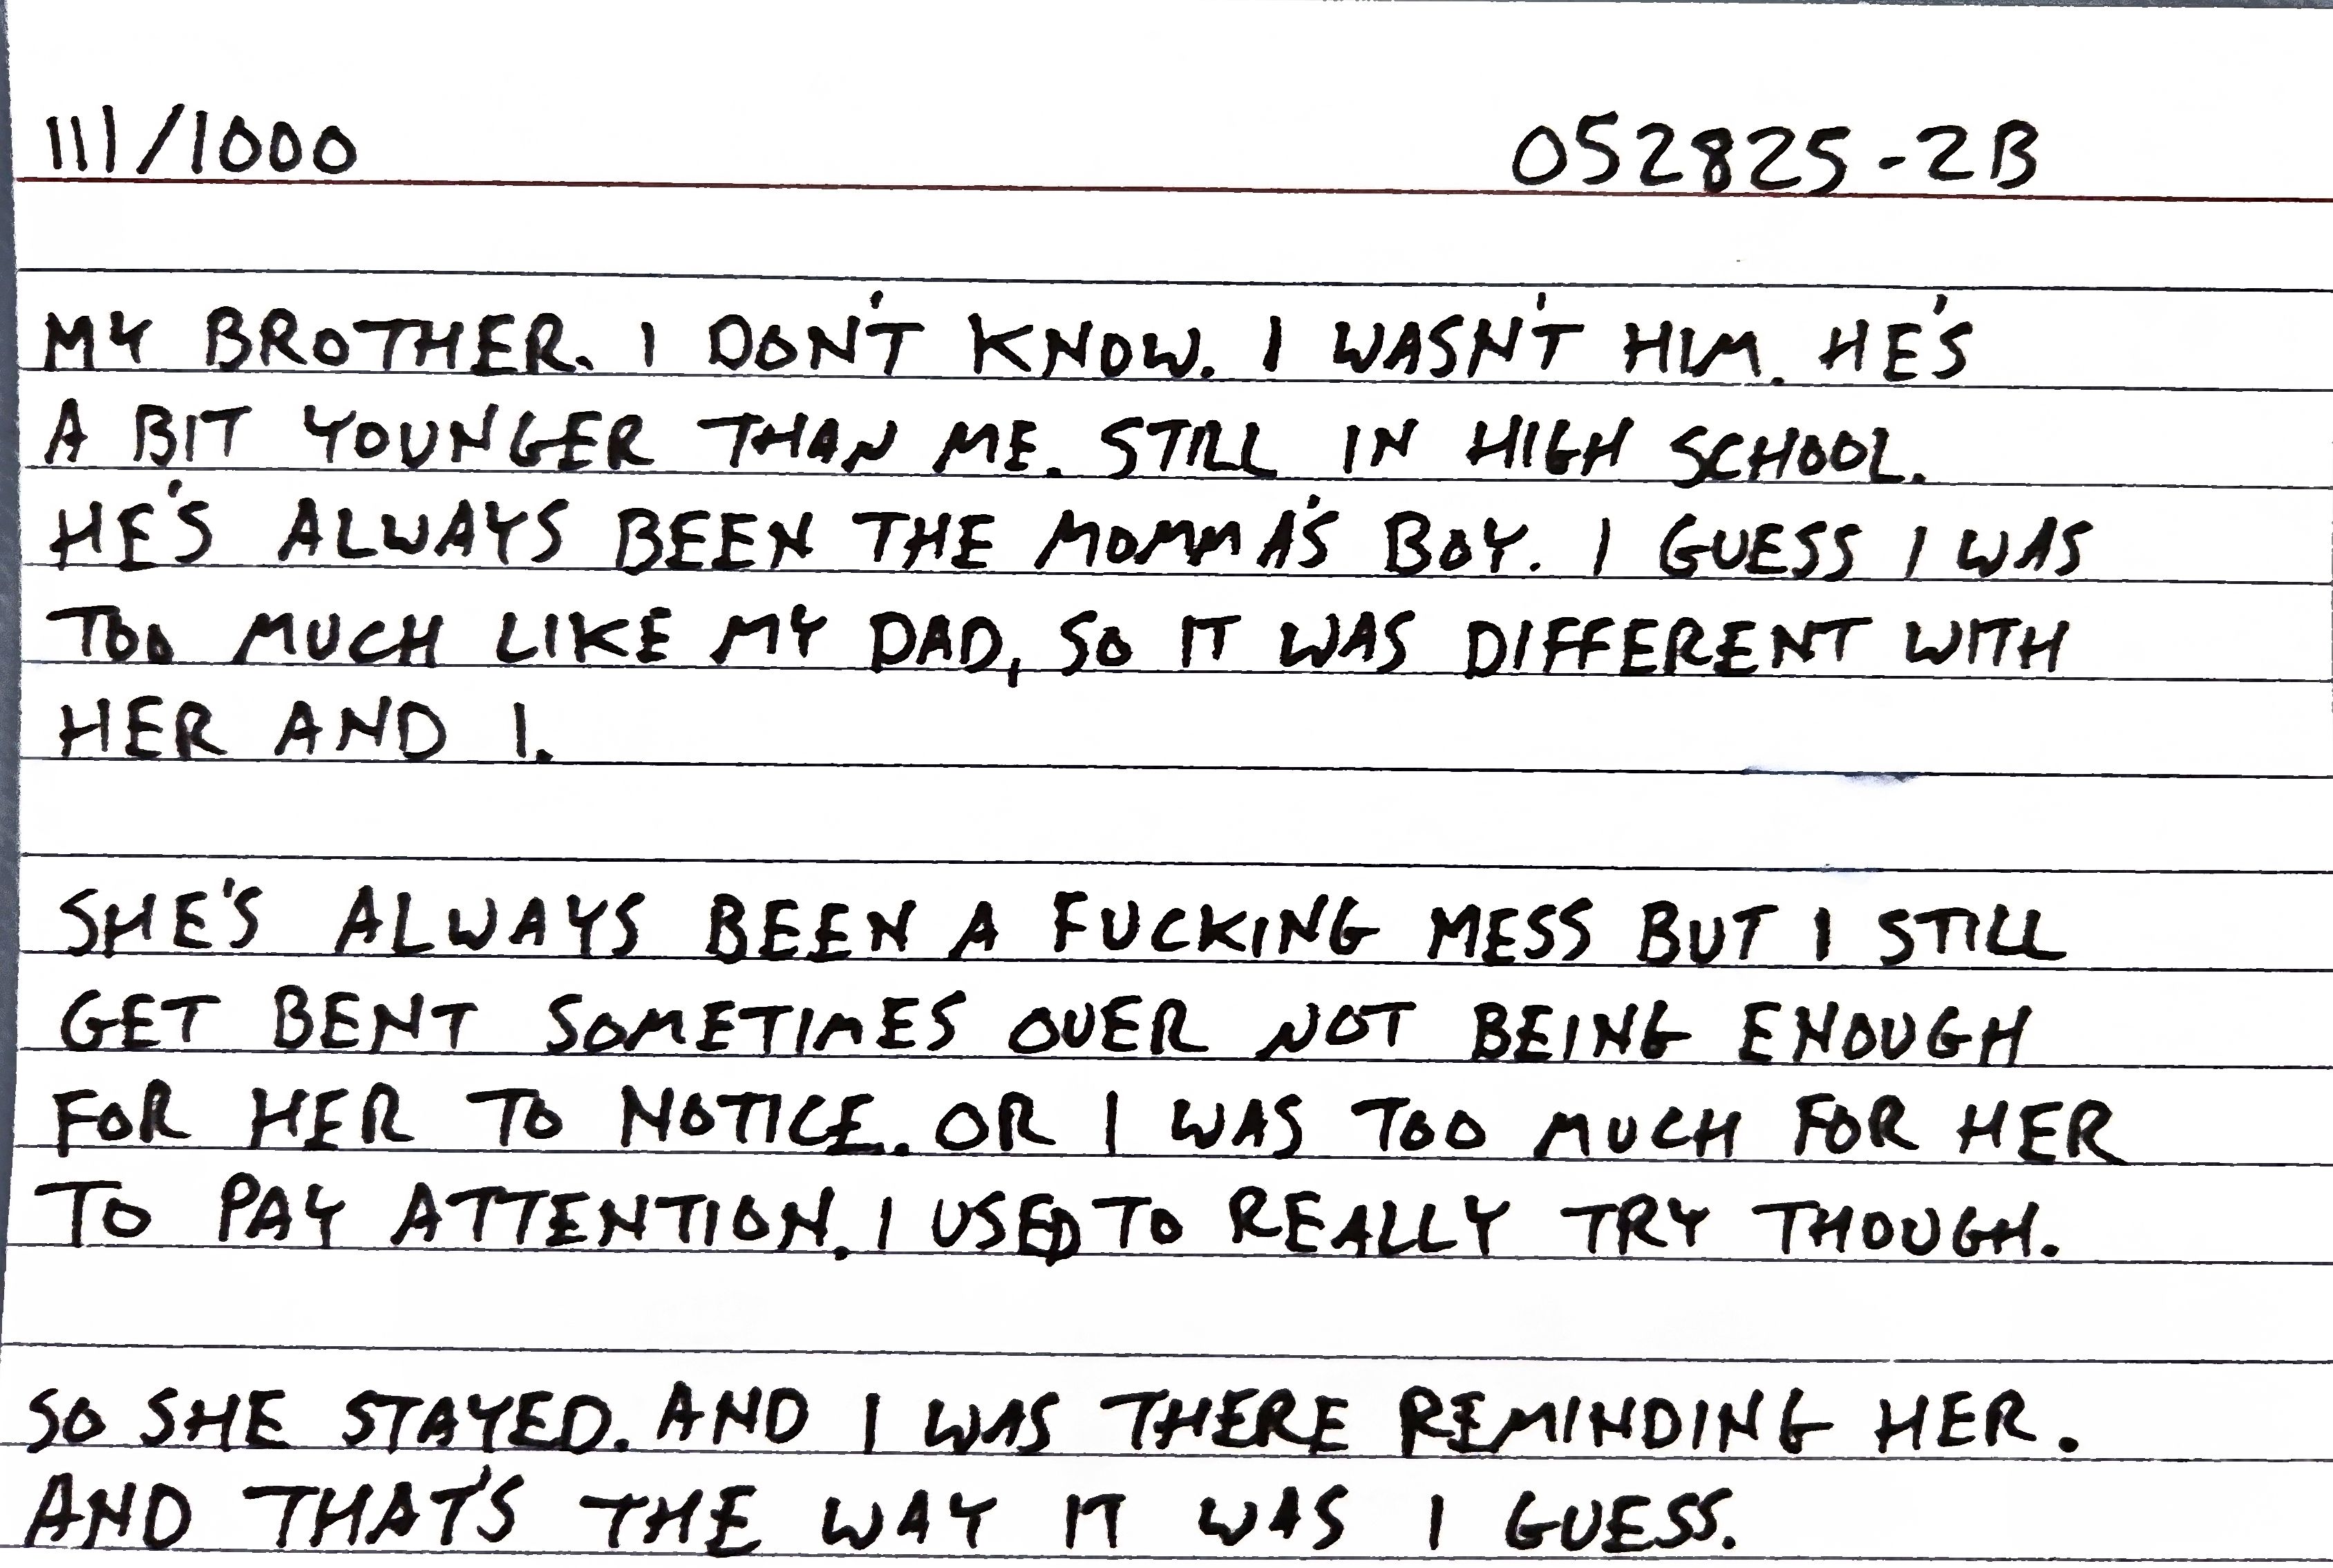 111/1000 052825-2B
MY BROTHER. I DON'T KNOW. I WASN'T HIM. HE'S
A BIT YOUNGER THAN ME. STILL IN HIGH SCHOOL.
HE'S ALWAYS BEEN THE MOMMA'S BOY. I GUESS I WAS
TOO MUCH LIKE MY DAD, SO IT WAS DIFFERENT WITH
HER AND I.
SHE'S ALWAYS BEEN A FUCKING MESS BUT I STILL
GET BENT SOMETIMES OVER NOT BEING ENOUGH
FOR HER TO NOTICE. OR I WAS TOO MUCH FOR HER
TO PAY ATTENTION. I USED TO REALLY TRY THOUGH.
SO SHE STAYED. AND I WAS THERE REMINDING HER.
AND THAT'S THE WAY IT WAS I GUESS.